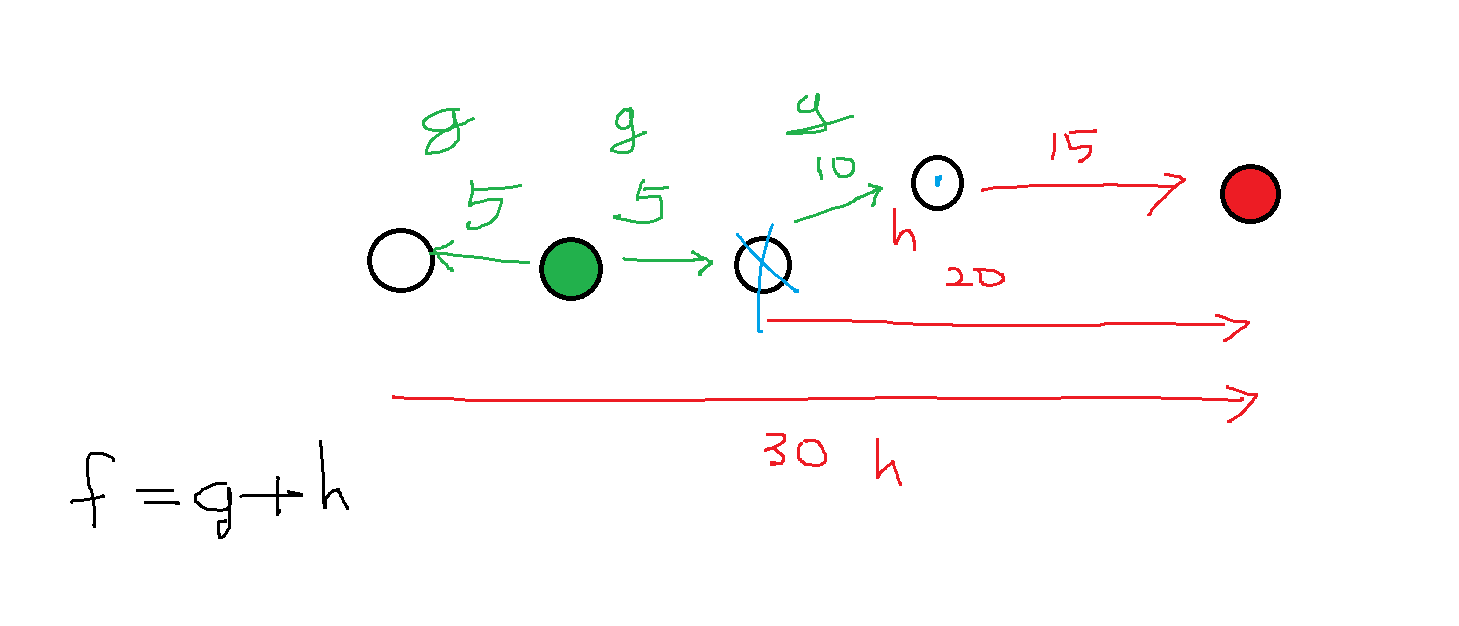 g g g
5 5 10 15
h
20
30 h
f = g + h